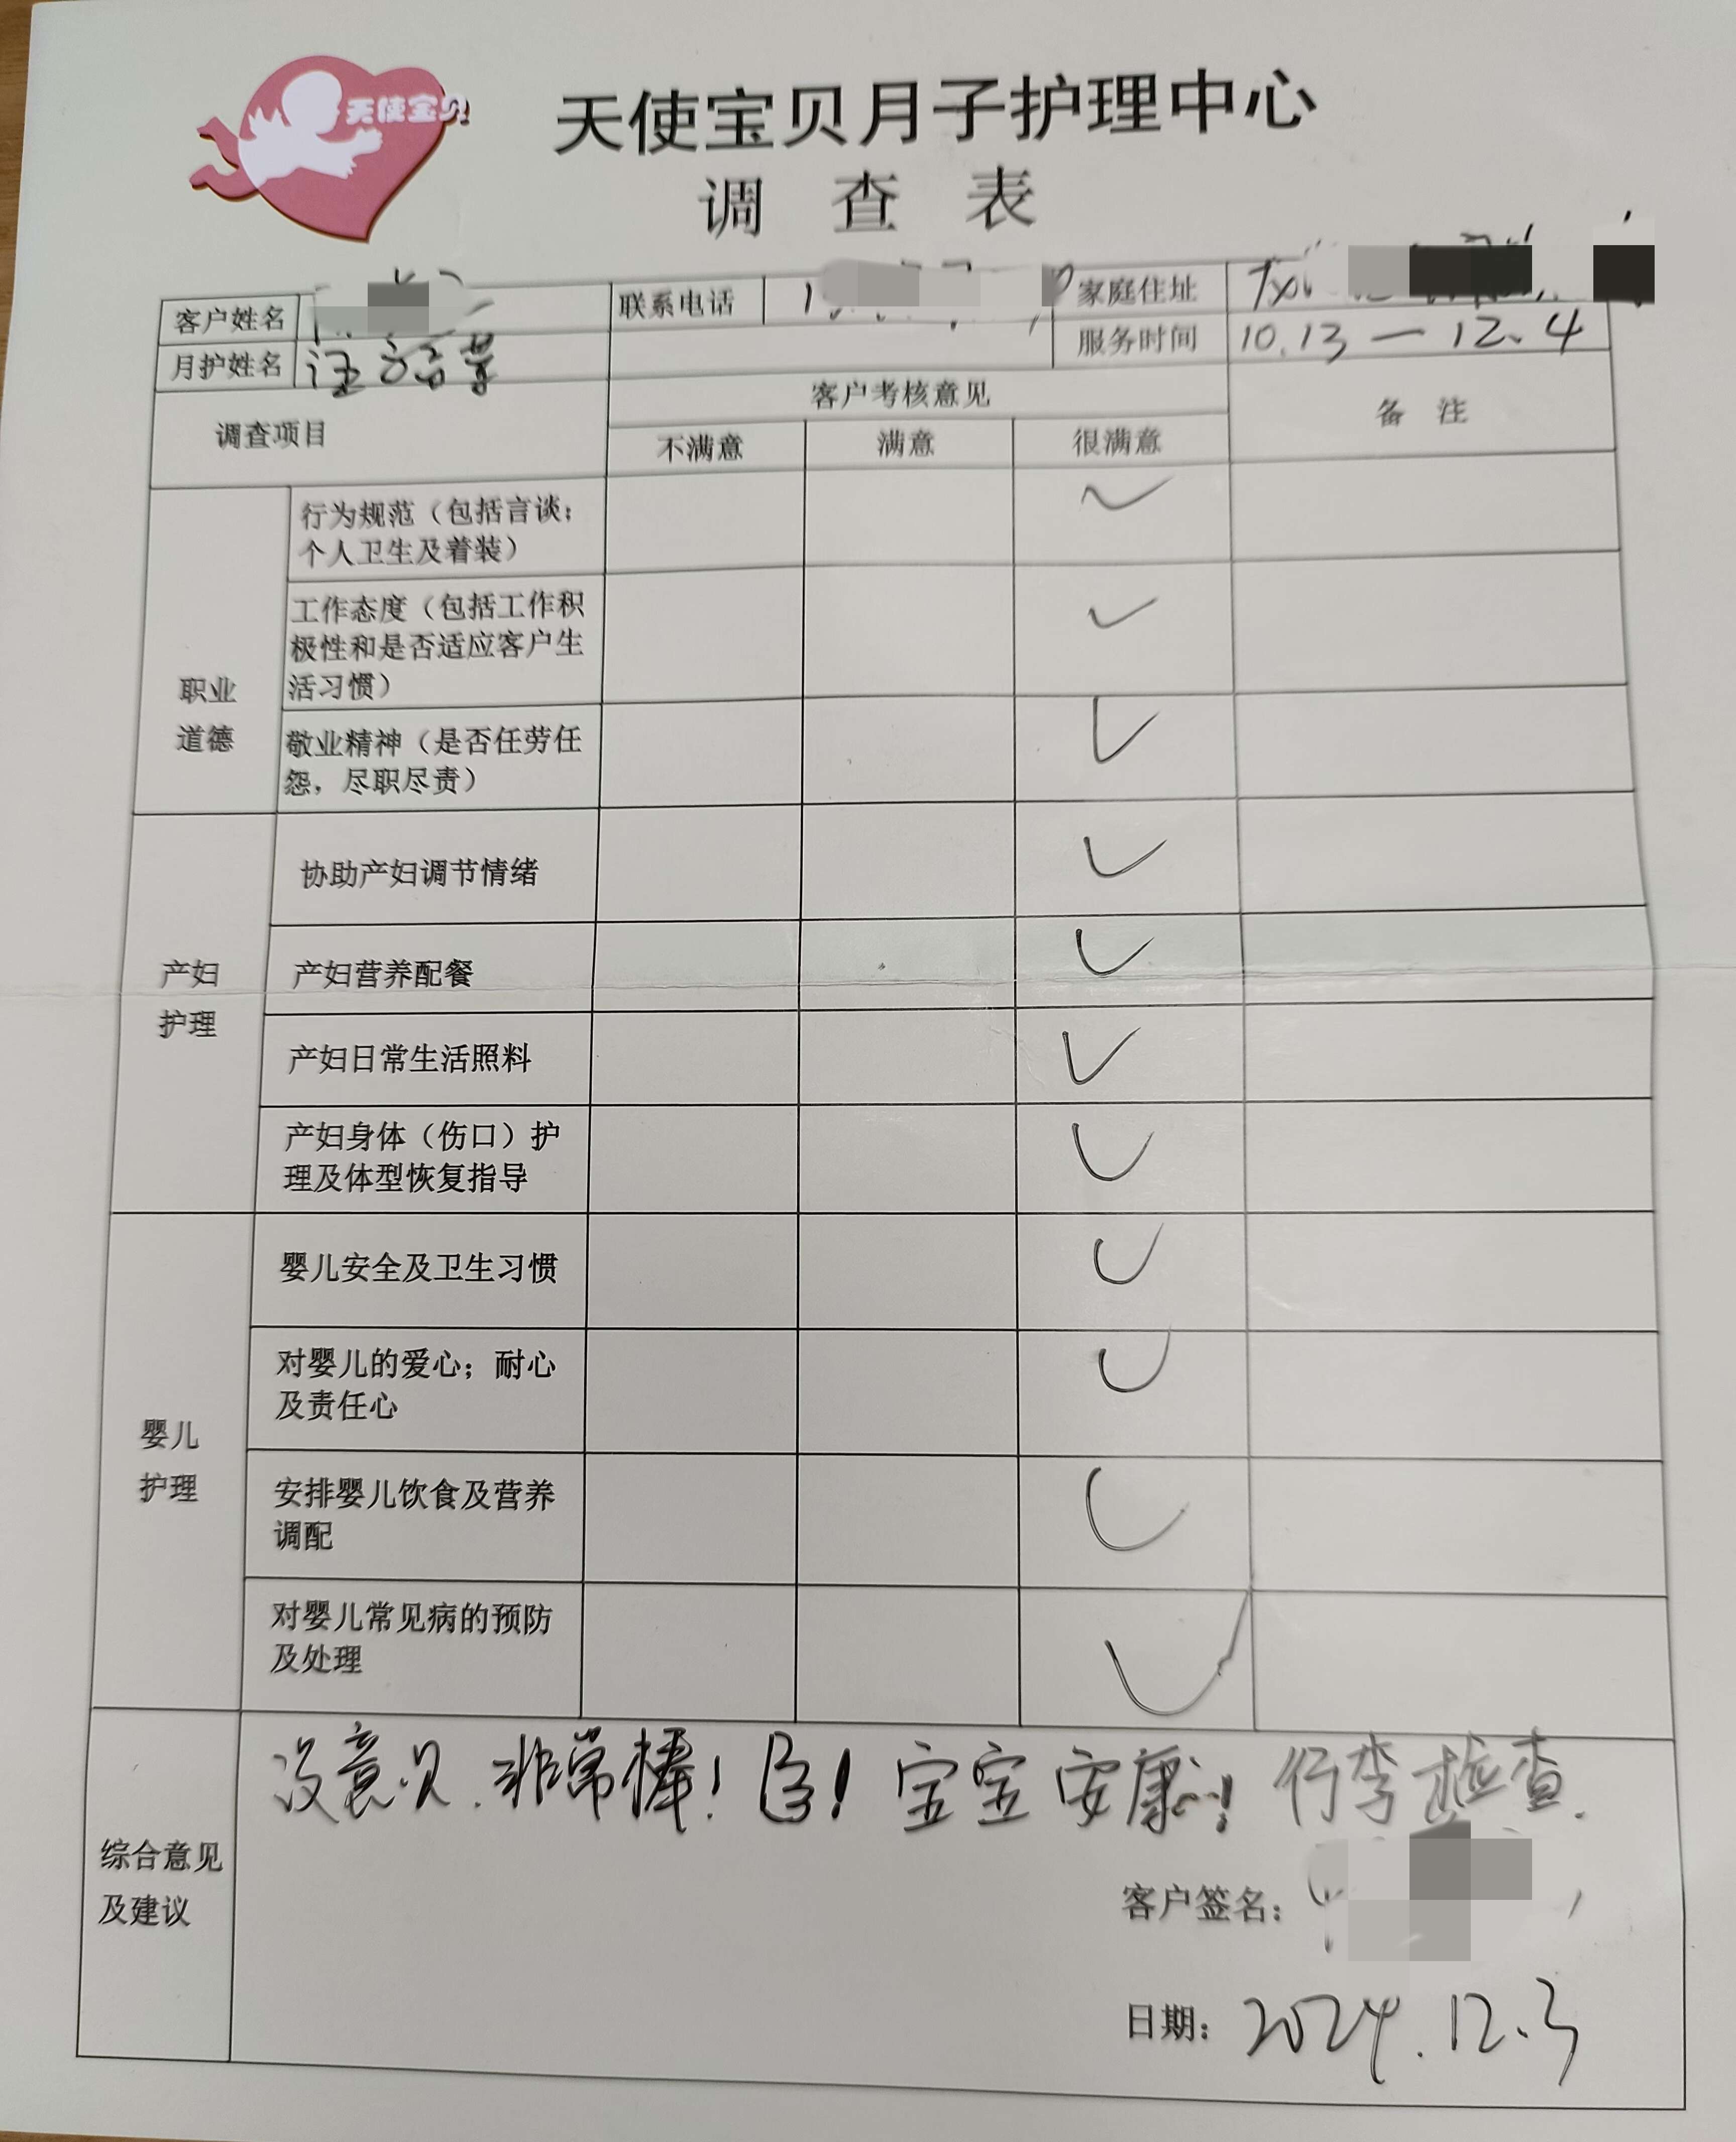 天使宝贝
天使宝贝月子护理中心
调 查 表
客户姓名 联系电话 家庭住址
月护姓名 服务时间 10.13 — 12.4
调查项目 客户考核意见 备 注
不满意 满意 很满意
职业
道德
行为规范（包括言谈；
个人卫生及着装）
工作态度（包括工作积
极性和是否适应客户生
活习惯）
敬业精神（是否任劳任
怨，尽职尽责）
产妇
护理
协助产妇调节情绪
产妇营养配餐
产妇日常生活照料
产妇身体（伤口）护
理及体型恢复指导
婴儿
护理
婴儿安全及卫生习惯
对婴儿的爱心；耐心
及责任心
安排婴儿饮食及营养
调配
对婴儿常见病的预防
及处理
综合意见
及建议
没意见.非常棒！ 宝宝安康！行李检查.
客户签名：
日期：2024.12.3